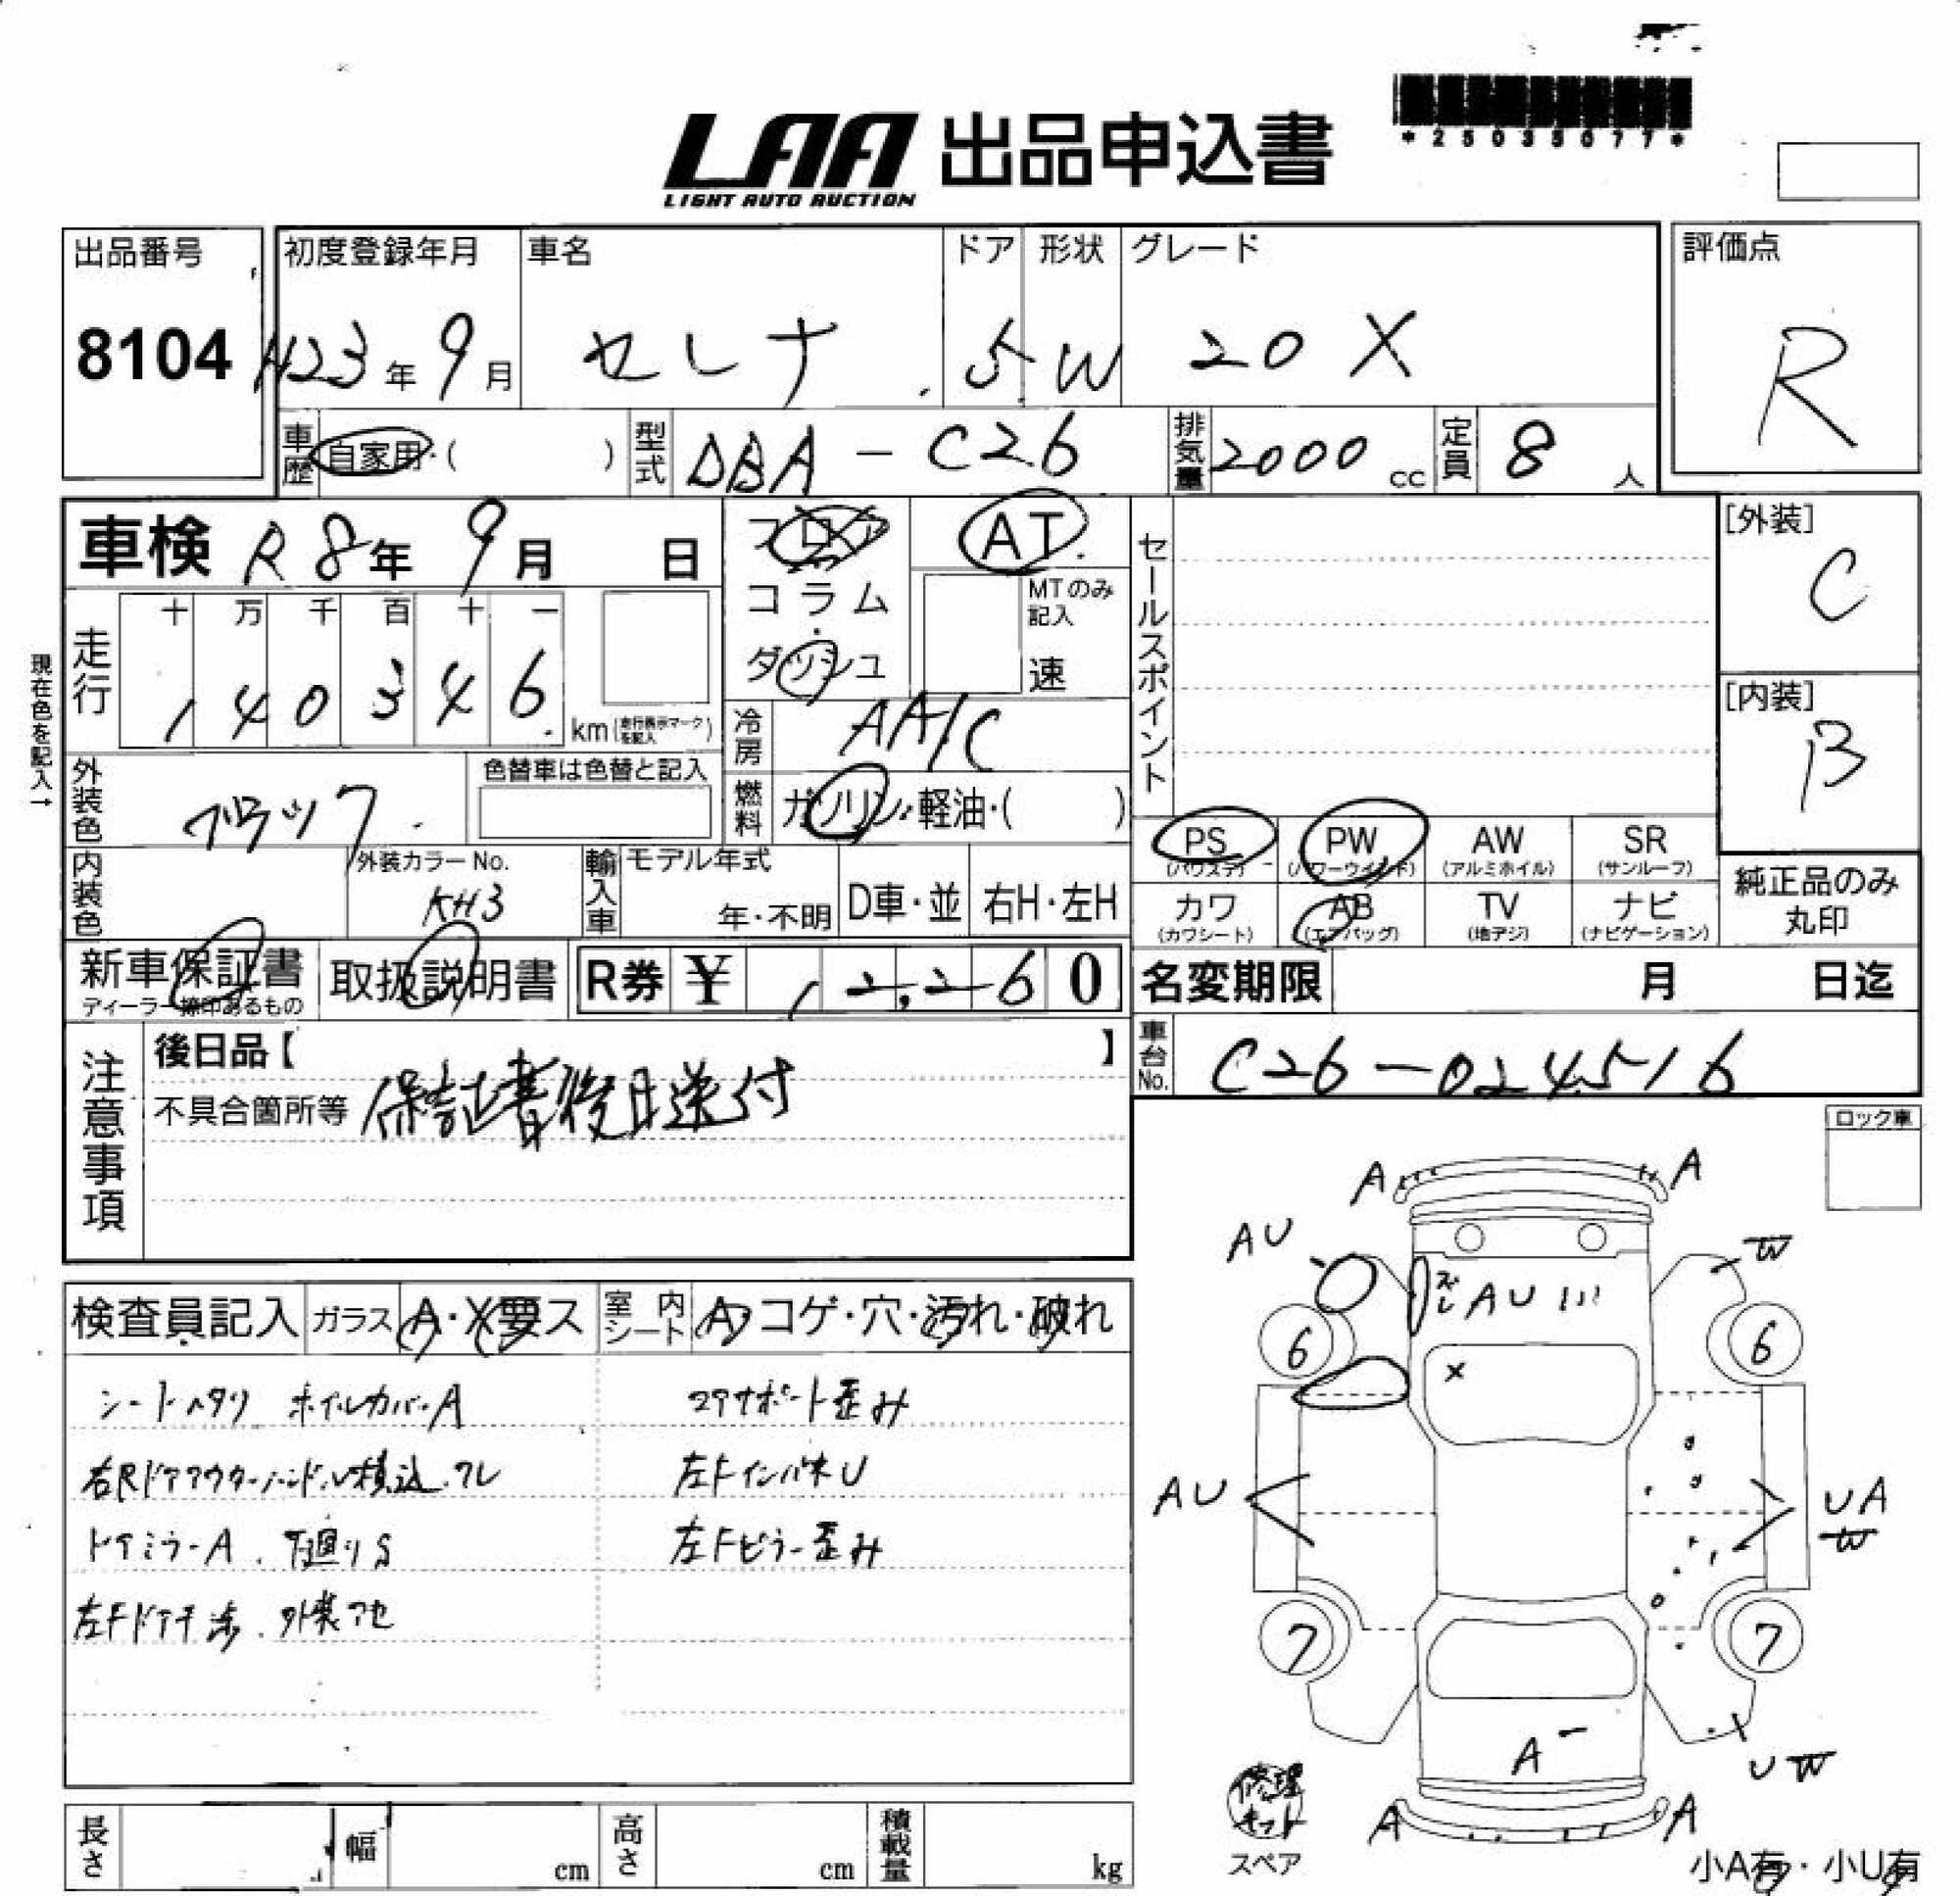 LAA 出品申込書
LIGHT AUTO AUCTION
*25035077*
出品番号
8104
初度登録年月
H23年9月
車名
セレナ
ドア
5
形状
W
グレード
20X
評価点
R
車歴
自家用・( )
型式
DBA-C26
排気量
2000cc
定員
8人
車検 R8年9月 日
フロア
コラム
ダッシュ
AT
MTのみ記入
速
セールスポイント
[外装]
C
[内装]
B
現在色を記入→
走行
十 万 千 百 十 一
1 4 0 3 4 6
km(走行表示マークを記入)
冷房
AA/C
外装色
ブラック
色替車は色替と記入
燃料
ガソリン・軽油・( )
PS
(パワステ)
PW
(パワーウインド)
AW
(アルミホイル)
SR
(サンルーフ)
内装色
外装カラーNo.
KH3
輸入車
モデル年式
年・不明
D車・並
右H・左H
カワ
(カワシート)
AB
(エアバッグ)
TV
(地デジ)
ナビ
(ナビゲーション)
純正品のみ
丸印
新車保証書
ディーラー捺印あるもの
取扱説明書
R券 ¥ 12,260
名変期限 月 日迄
注意事項
後日品【 】
不具合箇所等 保証書後日送付
車台No.
C26-024516
ロック車
検査員記入
ガラス A・X要ス
室内シート A・コゲ・穴・汚れ・破れ
シートヘタリ ホイルカバーA
コアサポート歪み
右Rドアアウターハンドル積込.ワレ
左FインパネU
ドアミラーA. 下廻りS
左Fピラー歪み
左Fドア干渉. 外装アセ
A A
AU W
ズレ AU
6 6
X
AU UA
W
7 7
A
UW
A A
修理キット
スペア
小A有・小U有
長さ
幅 cm
高さ cm
積載量 kg